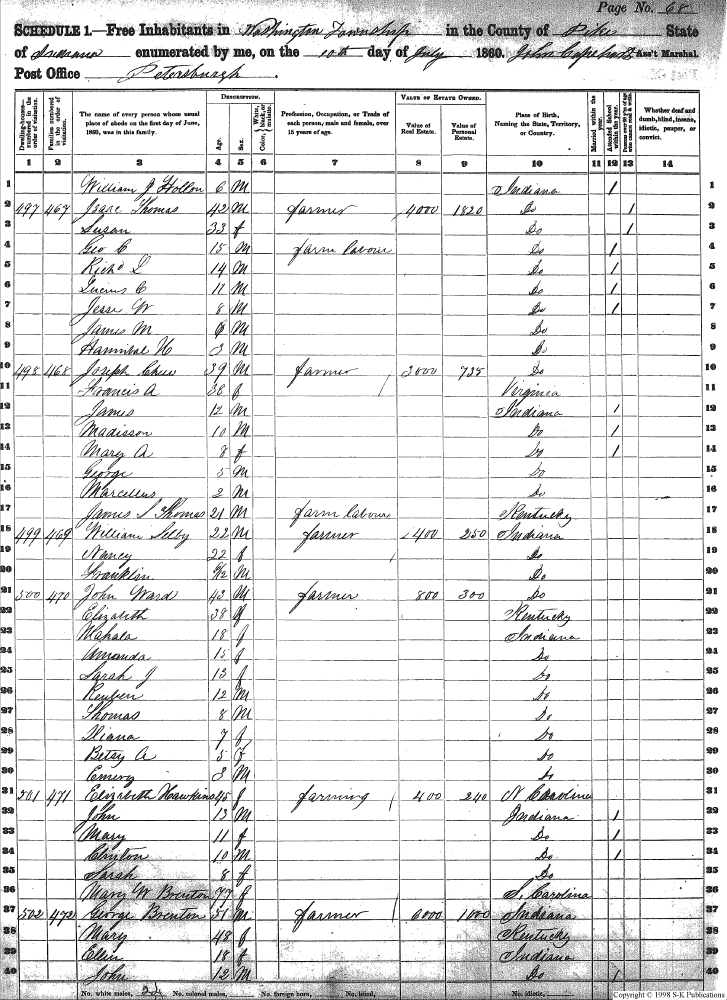 Page No. 68
SCHEDULE 1.—Free Inhabitants in Washington Township in the County of Pike State
of Indiana enumerated by me, on the 10th day of July 1860. John Capehart Ass't Marshal.
Post Office Petersburgh.
Dwelling-houses— numbered in the order of visitation.
Families numbered in the order of visitation.
The name of every person whose usual place of abode on the first day of June, 1860, was in this family.
DESCRIPTION.
Age.
Sex.
Color, White, black, or mulatto.
Profession, Occupation, or Trade of each person, male and female, over 15 years of age.
VALUE OF ESTATE OWNED.
Value of Real Estate.
Value of Personal Estate.
Place of Birth, Naming the State, Territory, or Country.
Married within the year.
Attended School within the year.
Whether deaf and dumb, blind, insane, idiotic, pauper, or convict.
1 2 3 4 5 6 7 8 9 10 11 12 13 14
1 William J Hollon 6 M Indiana / 1
2 497 467 Isaac Thomas 42 M farmer 4000 1820 Do / 2
3 Susan 33 f Do / 3
4 Geo C 15 M farm labour Do / 4
5 Richd L 14 M Do / 5
6 Lucius C 11 M Do / 6
7 Jesse W 8 M Do / 7
8 James M M Do 8
9 Hannibal H 3 M Do 9
10 498 468 Joseph Chew 39 M farmer 3000 735 Do 10
11 Francis A 38 f Virginia 11
12 James 12 M Indiana / 12
13 Madisson 10 M Do / 13
14 Mary A 8 f Do / 14
15 George 5 M Do 15
16 Marcellus 2 M Do 16
17 James S Thomas 21 M farm labour Kentucky 17
18 499 469 William Selby 22 M farmer 400 250 Indiana 18
19 Nancy 22 f Do 19
20 Franklin 9/12 M Do 20
21 500 470 John Ward 43 M farmer 800 300 Do 21
22 Elizabeth 38 f Kentucky 22
23 Mahala 18 f Indiana 23
24 Amanda 15 f Do 24
25 Sarah J 13 f Do 25
26 Reuben 12 M Do 26
27 Thomas 8 M Do 27
28 Diana 7 f Do 28
29 Betsy A 5 f Do 29
30 Emery 3 M Do 30
31 501 471 Elizabeth Hawkins 45 f farming 400 240 N Carolina 31
32 John 13 M Indiana / 32
33 Mary 11 f Do / 33
34 Clinton 10 M Do / 34
35 Sarah 8 f Do 35
36 Mary W Brenton 77 f S. Carolina 36
37 502 472 George Brenton 51 M farmer 6000 1000 Indiana 37
38 Mary 48 f Kentucky 38
39 Ellen 18 f Indiana 39
40 John 12 M Do / 40
No. white males, No. colored males, No. foreign born, No. blind, No. idiotic,
Copyright © 1998 S-K Publications